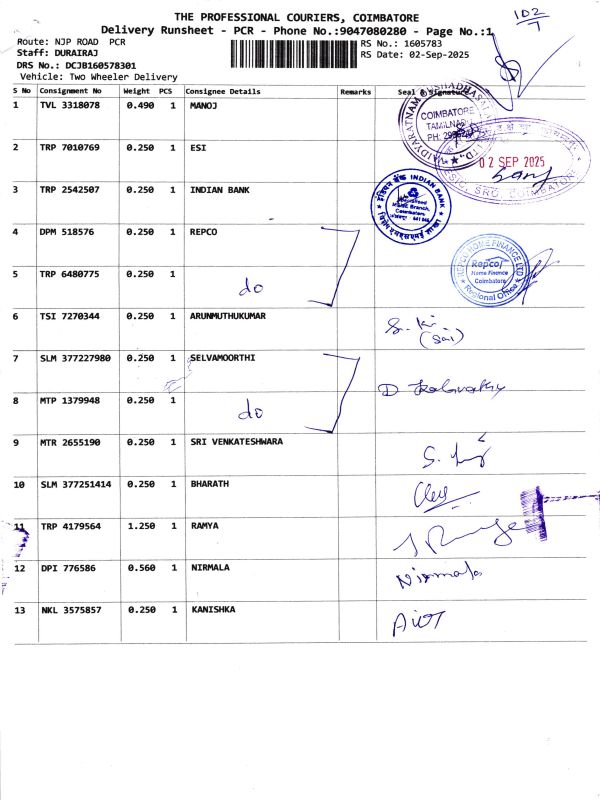 THE PROFESSIONAL COURIERS, COIMBATORE
Delivery Runsheet - PCR - Phone No.:9047080280 - Page No.:1
102/7
Route: NJP ROAD PCR
RS No.: 1605783
Staff: DURAIRAJ
RS Date: 02-Sep-2025
DRS No.: DCJB160578301
Vehicle: Two Wheeler Delivery
S No Consignment No Weight PCS Consignee Details Remarks Seal & Signature
1 TVL 3318078 0.490 1 MANOJ
COIMBATORE
TAMILNADU
2 TRP 7010769 0.250 1 ESI
02 SEP 2025
SRO, COIMBATORE
3 TRP 2542507 0.250 1 INDIAN BANK
इंडियन बैंक INDIAN BANK
Coimbatore
4 DPM 518576 0.250 1 REPCO
REPCO HOME FINANCE LTD
Repco
Home Finance
Coimbatore
Regional Office
5 TRP 6480775 0.250 1 do
6 TSI 7270344 0.250 1 ARUNMUTHUKUMAR
(Sai)
7 SLM 377227980 0.250 1 SELVAMOORTHI
8 MTP 1379948 0.250 1 do
9 MTR 2655190 0.250 1 SRI VENKATESHWARA
10 SLM 377251414 0.250 1 BHARATH
11 TRP 4179564 1.250 1 RAMYA
12 DPI 776586 0.560 1 NIRMALA Nirmala
13 NKL 3575857 0.250 1 KANISHKA